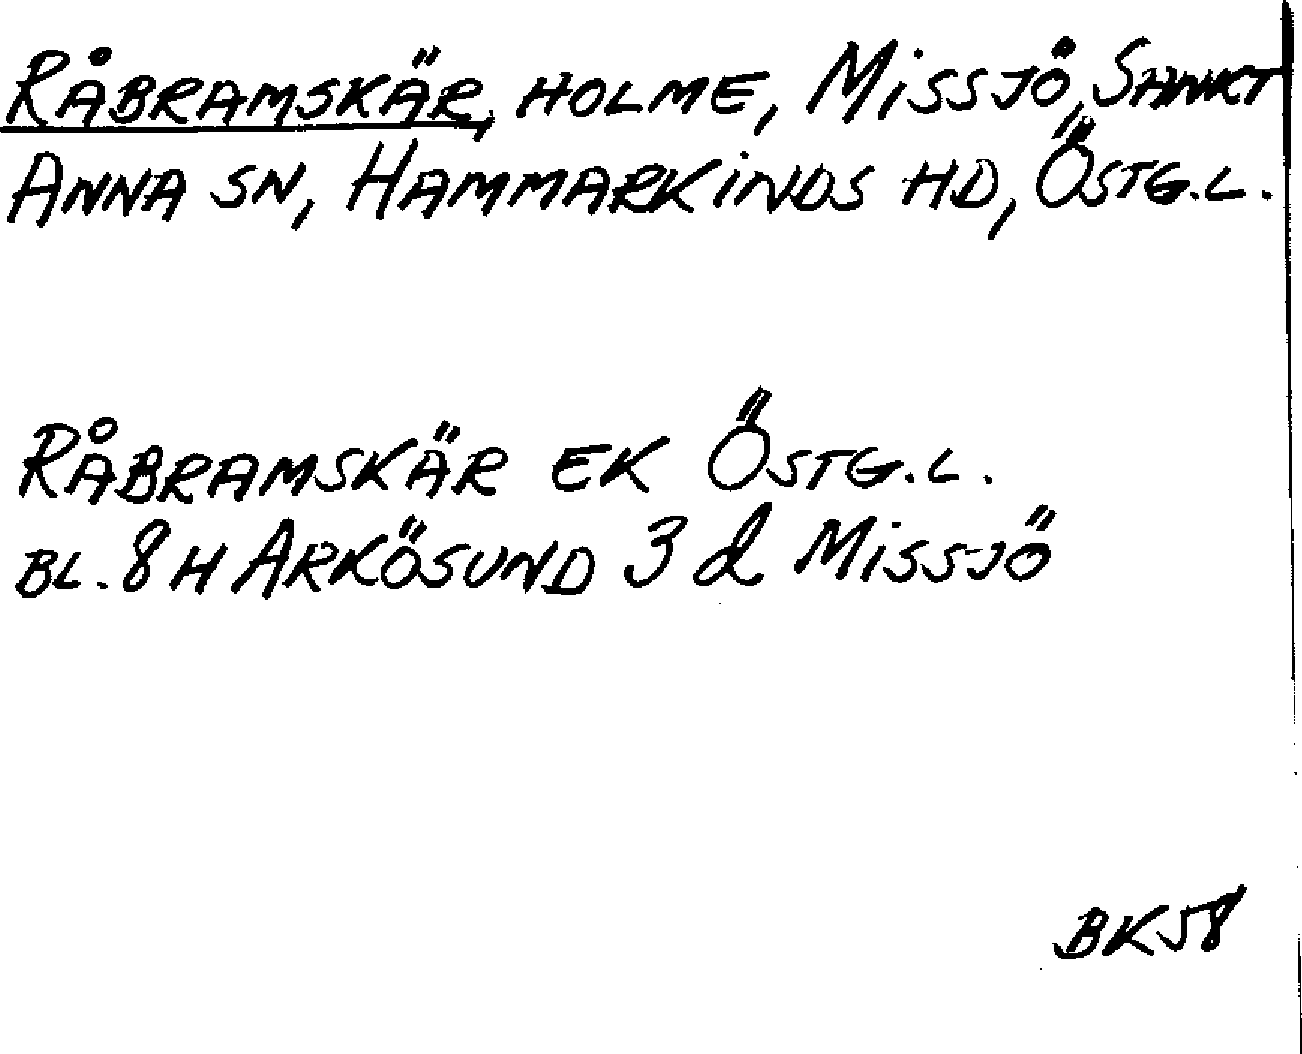 RÅBRAMSKÄR, HOLME, MISSJÖ, SANKT
ANNA SN, HAMMARKINDS HD, ÖSTG.L.
RÅBRAMSKÄR EK ÖSTG.L.
BL. 8H ARKÖSUND 3 d MISSJÖ
BK58